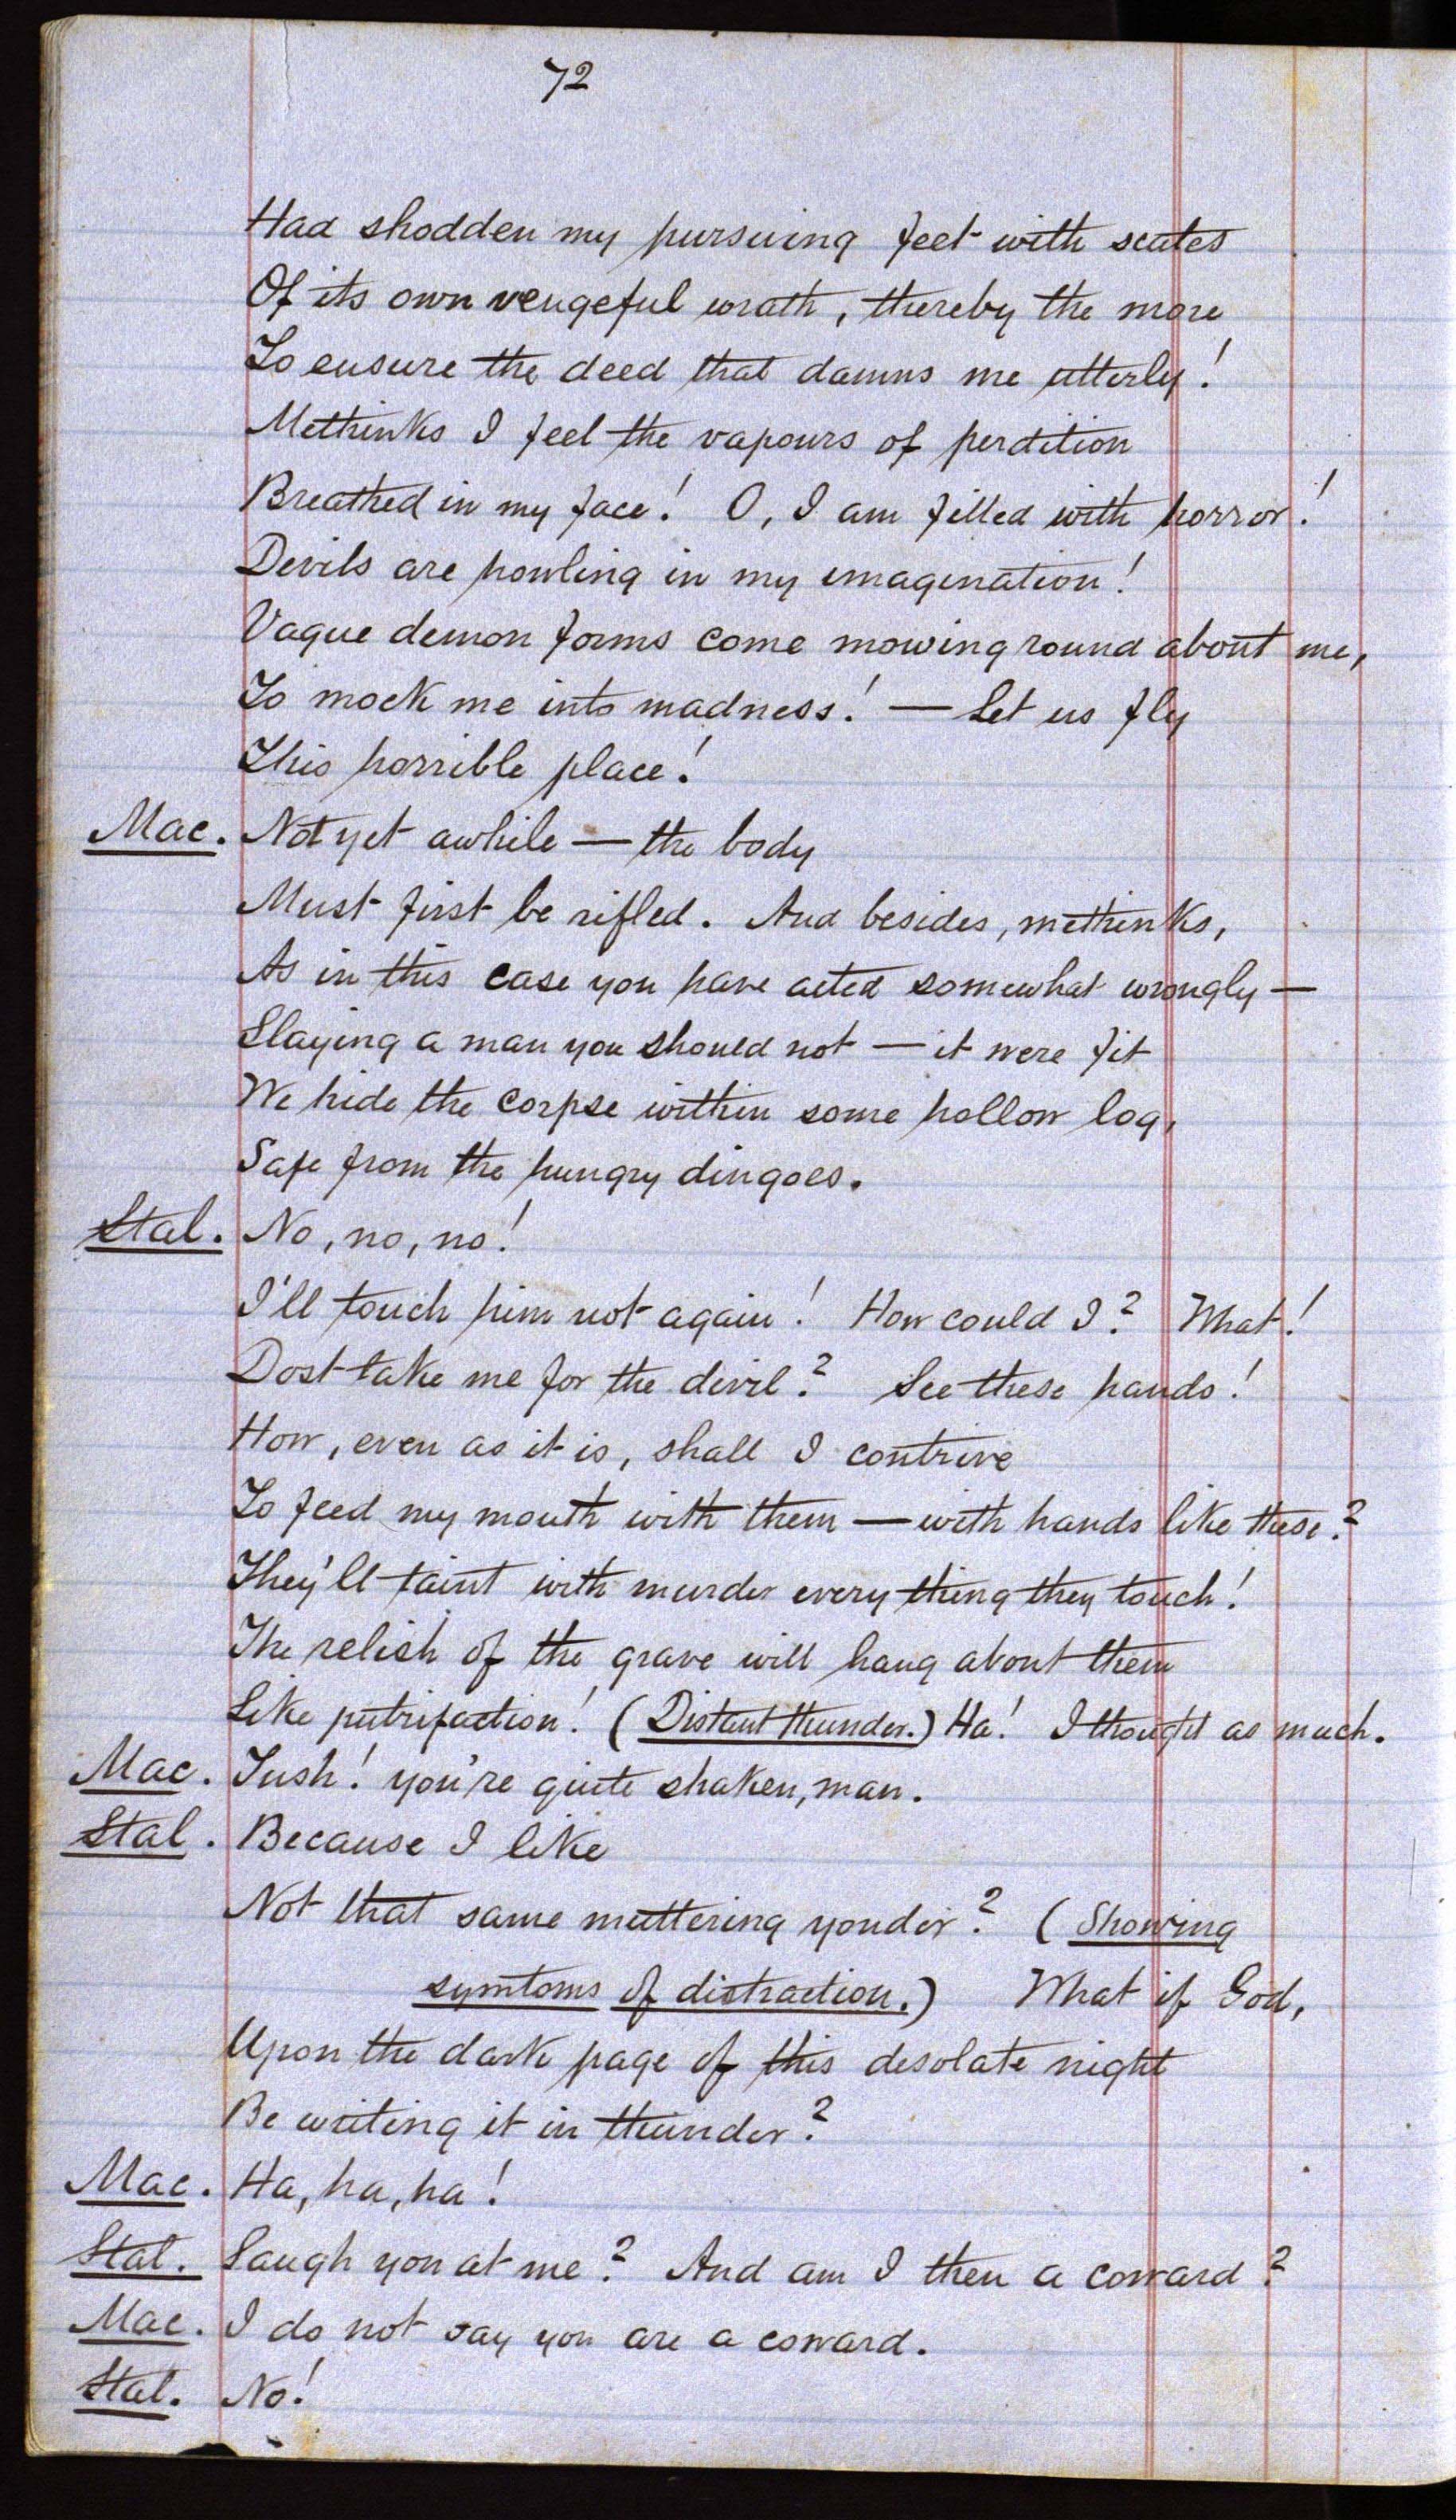 72
Had shodden my pursuing feet with scutes
Of its own vengeful wrath, thereby the more
To ensure the deed that damns me utterly!
Methinks I feel the vapours of perdition
Breathed in my face! O, I am filled with horror!
Devils are howling in my imagination!
Vague demon forms come mowing round about me,
To mock me into madness! — Let us fly
This horrible place!
Mac. Not yet awhile — the body
Must first be rifled. And besides, methinks,
As in this case you have acted somewhat wrongly —
Slaying a man you should not — it were fit
We hide the corpse within some hollow log,
Safe from the hungry dingoes.
Stal. No, no, no!
I'll touch him not again! How could I? What!
Dost take me for the devil? See these hands!
How, even as it is, shall I contrive
To feed my mouth with them — with hands like these?
They'll taint with murder every thing they touch!
The relish of the grave will hang about them
Like putrifaction! (Distant thunder.) Ha! I thought as much.
Mac. Tush! you're quite shaken, man.
Stal. Because I like
Not that same muttering yonder? (Showing
symtoms of distraction.) What if God,
Upon the dark page of this desolate night
Be writing it in thunder?
Mac. Ha, ha, ha!
Stal. Laugh you at me? And am I then a coward?
Mac. I do not say you are a coward.
Stal. No!